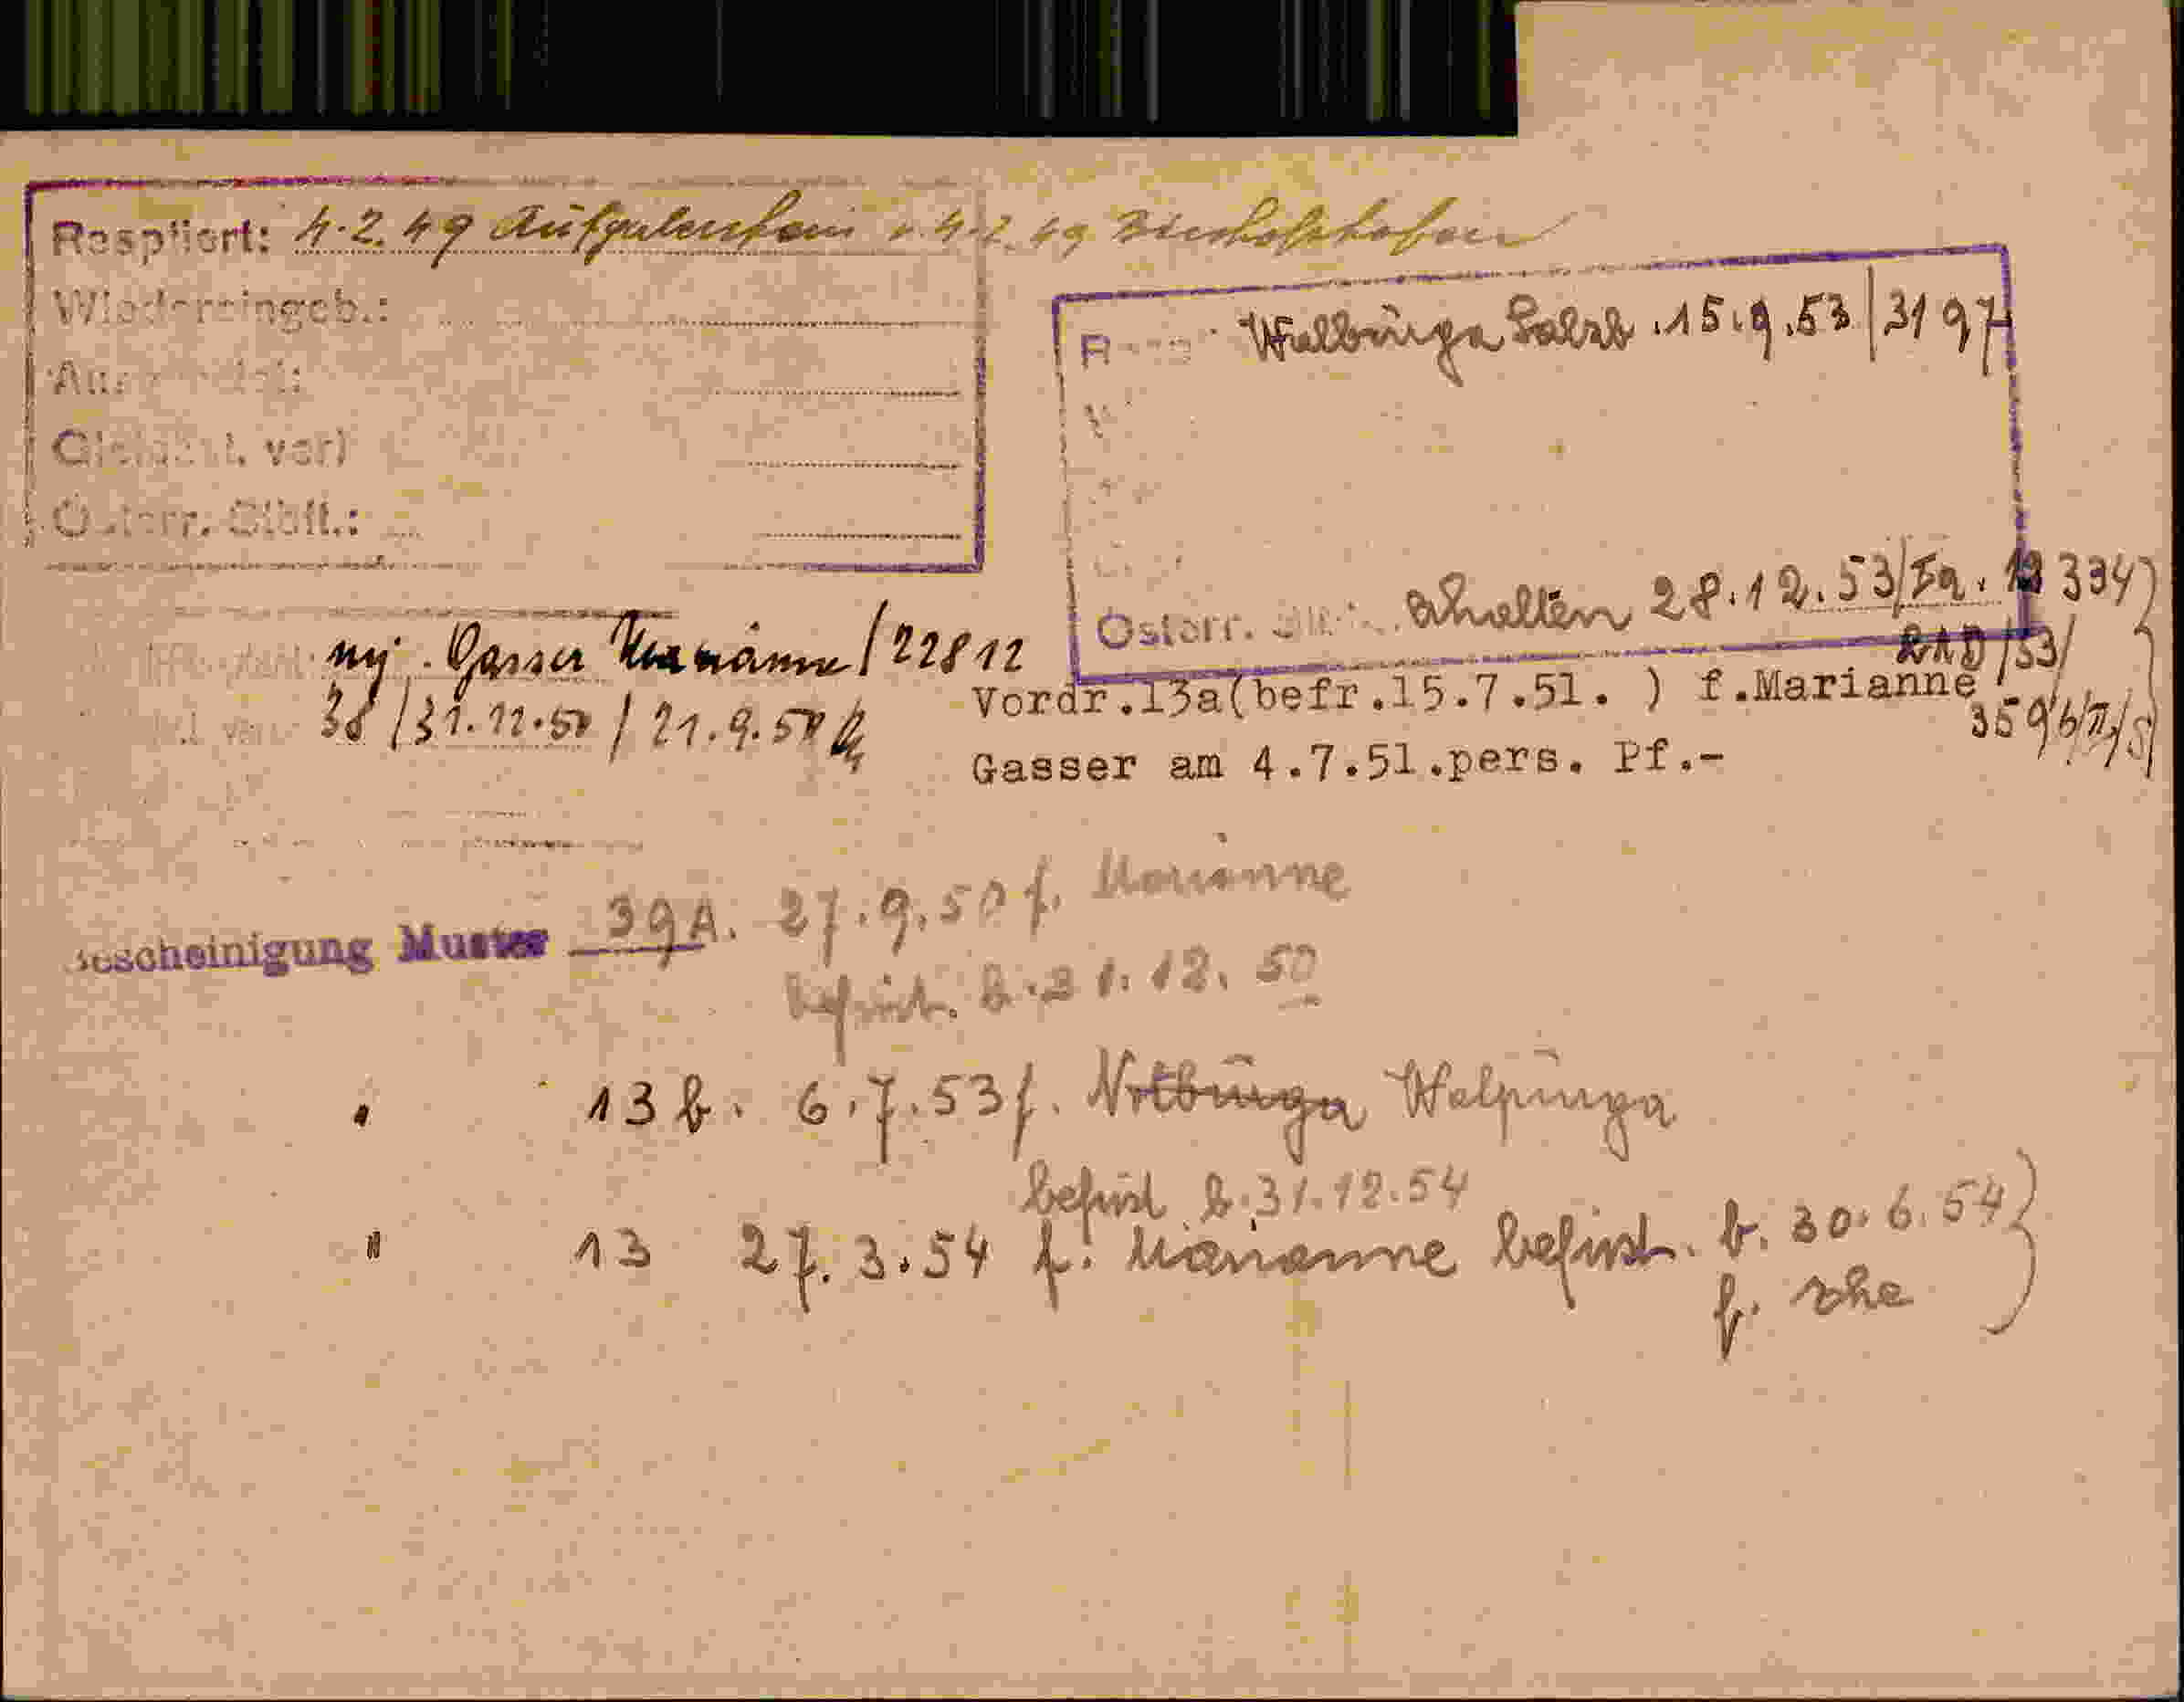 Respiiert: 4.2.49 v. 4.2.49 Bischofshofen
Wiedereingeb.:
Gleichst. verl
Österr. Stbft.:
Walburga Salzb. 15.9.53/3197
Österr. erhalten 28.12.53/Za. 334
RAD/53/
mj. Gasser Marianne/22812
38/31.12.50/21.9.50
Vordr.13a(befr.15.7.51. ) f.Marianne
Gasser am 4.7.51.pers. Pf.-
359/6/II/S
escheinigung Muster 39A. 27.9.50 f. Marianne
befrist. b. 31.12.50
" 13b. 6.7.53 f. Notburga Walpurga
befrist b. 31.12.54
" 13 27.3.54 f. Marianne befrist. b. 30.6.54
f. Ehe